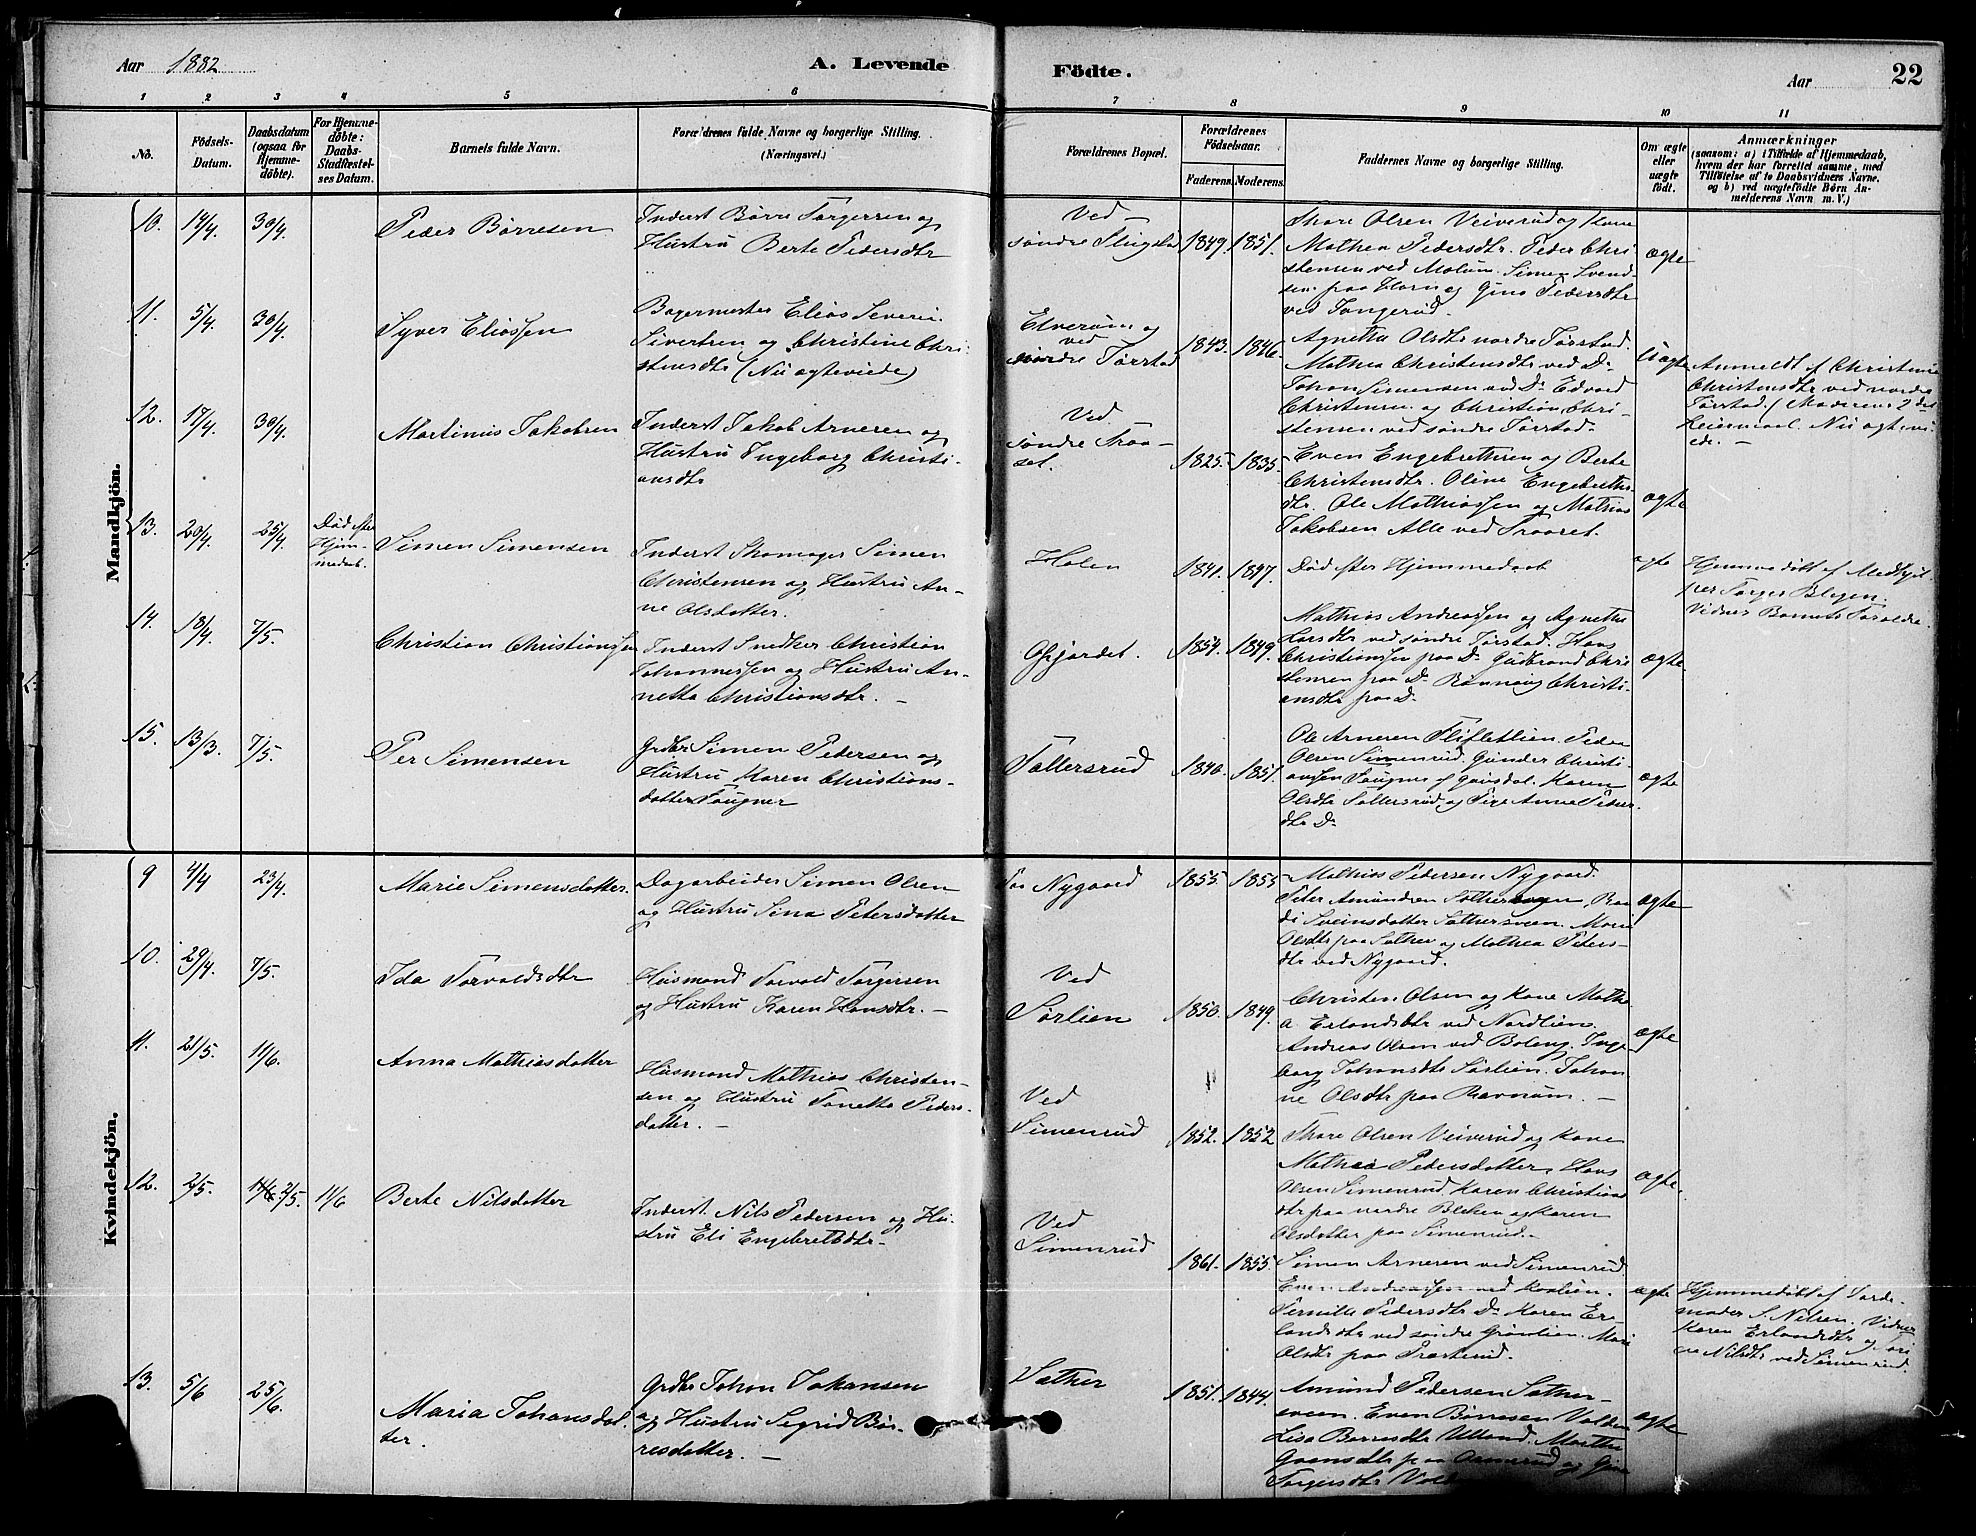 Aar 1882
A. Levende
Födte.
Aar
22
1 2 3 4 5 6 7 8 9 10 11
No.
Födsels-
Datum.
Daabsdatum
(ogsaa for
Hjemme-
döbte).
For Hjemme-
döbte:
Daabs-
Stadfæstel-
ses Datum.
Barnets fulde Navn.
Forældrenes fulde Navne og borgerlige Stilling.
(Næringsvei.)
Forældrenes Bopæl.
Forældrenes
Födselsaar.
Faderens. Moderens.
Faddernes Navne og borgerlige Stilling.
Om ægte
eller
uægte
födt.
Anmærkninger
(saasom: a) i Tilfælde af Hjemmedaab,
hvem der har forrettet samme, med
Tilföielse af to Daabsvidners Navne.
og b) ved uægtefödte Börn An-
melderens Navn m. V.)
Mandkjön.
10. 14/4. 30/4.
Peder Børresen
Inderst Børre Torgersen og
Hustru Berte Pedersdtr
Ved
søndre
1849. 1851.
Thore Olsen Veiverud og Kone
Mathea Pedersdtr. Peder Chri
stensen ved Molum. Simen Svend-
sen paa Horn og Gina Pedersdtr
ved
ægte
11. 5/4. 30/4
Syver Eliassen
Bagermester Elias Severin
Sivertsen og Christine Chri-
stensdtr (Nu ægteviede)
Elverum og
ved
nordre Tørstad
1843. 1846.
Agnetha Olsdtr nordre Tørstad.
Mathea Christensdtr ved Do
Johan Simensen ved Do Edvard
Christensen og Christian Chri-
stensen ved søndre Tørstad.
Uægte
Anmeldt af Christine
Christensdtr ved nordre
Tørstad. (Moderens 2det
Leiermaal. Nu ægtevi-
ede.
12. 17/4 30/4
Martinus Jakobsen
Inderst Jakob Arnesen og
Hustru Ingeborg Christi-
ansdtr
Ved
søndre Traa-
set.
1825. 1835.
Even Engebretsen og Berte
Christensdtr. Oline Engebrets-
dtr. Ole Mathiassen og Mathias
Jakobsen Alle ved Traaset.
ægte
13. 20/4. 25/4
Død efter
Hjem-
medaab.
Simen Simensen
Inderst Skomager Simen
Christensen og Hustru An-
ne Olsdatter.
Holen
1841. 1847.
Død efter Hjemmedaab
ægte
Hjemmedøbt af Medhjel-
per Torger Blegen.
Vidner Barnets Forældre
14. 18/4. 7/5.
Christian Christiansen
Inderst Snedker Christian
Johannessen og Hustru An-
netta Christiansdtr.
1854. 1849.
Mathias Andreassen og Agnethe
Larsdtr ved søndre Tørstad. Hans
Christiansen paa Do Gudbrand Chri
stensen paa Do Rønnaug Christi-
ansdtr paa Do
ægte
15. 13/3. 7/5.
Per Simensen
Grdbr Simen Pedersen og
Hustru Karen Christians-
datter Tougner
Tollersrud
1840. 1851.
Ole Arnesen Peder
Olsen Simenrud. Gunder Christi-
ansen Tougner af Gausdal. Karen
Olsdtr Tollersrud og Pige Anne Peders
dtr Do
ægte
Kvindekjön.
9 4/4 23/4.
Marie Simensdatter.
Dagarbeider Simen Olsen
og Hustru Sina Petersdatter
Paa Nygaard
1855. 1855
Mathias Pedersen Nygaard.
Peter Amundsen Sathersveen. Ran
di Sveinsdatter Sathersveen. Mari
Olsdtr paa Sather og Mathea Peters-
dtr ved Nygaard.
ægte
10. 29/4. 7/5.
Ida Torvaldsdtr
Husmand Torvald Torgersen
og Hustru Karen Hansdtr.
Ved
Sørlien
1850. 1849.
Christen Olsen og Kone Mathe
a Erlandsdtr ved Nordlien.
Andreas Olsen ved Boleng. Inge
borg Johansdtr Sørlien. Johan
ne Olsdtr paa Ravnum.
ægte
11. 21/5. 11/6.
Anna Mathiasdatter
Husmand Mathias Christen-
sen og Hustru Tonetta Peders-
datter.
Ved
Simenrud
1852. 1852
Thore Olsen Veiverud og Kone
Mathea Pedersdatter. Hans
Olsen Simenrud. Karen Christians
dtr paa nordre Bleken og Karen
Olsdatter paa Simenrud.
ægte.
12. 2/5. 11/6 2/5. 11/6
Berte Nilsdatter
Inderst Nils Pedersen og Hu-
stru Eli Engebretsdtr
Ved
Simenrud
1861. 1855.
Simen Arnesen ved Simenrud
Even Andreassen ved
Pernille Pedersdtr Do Karen Er-
landsdtr ved søndre Grønlien. Mari
Olsdtr paa Præsterud.
ægte
Hjemmedøbt af Jorde-
moder S. Nilsen. Vidner
Karen Erlandsdtr og Mari
ne Nilsdtr ved Simenrud
13. 5/6 25/6.
Maria Johansdat-
ter.
Grdbr Johan Johansen
og Hustru Sigrid Bør-
resdatter.
Sather
1851. 1844.
Amund Pedersen Sather-
sveen. Even Børresen Volden
Lisa Børresdtr Ulland. Marthe
paa og Gina
Torgersdtr
ægte